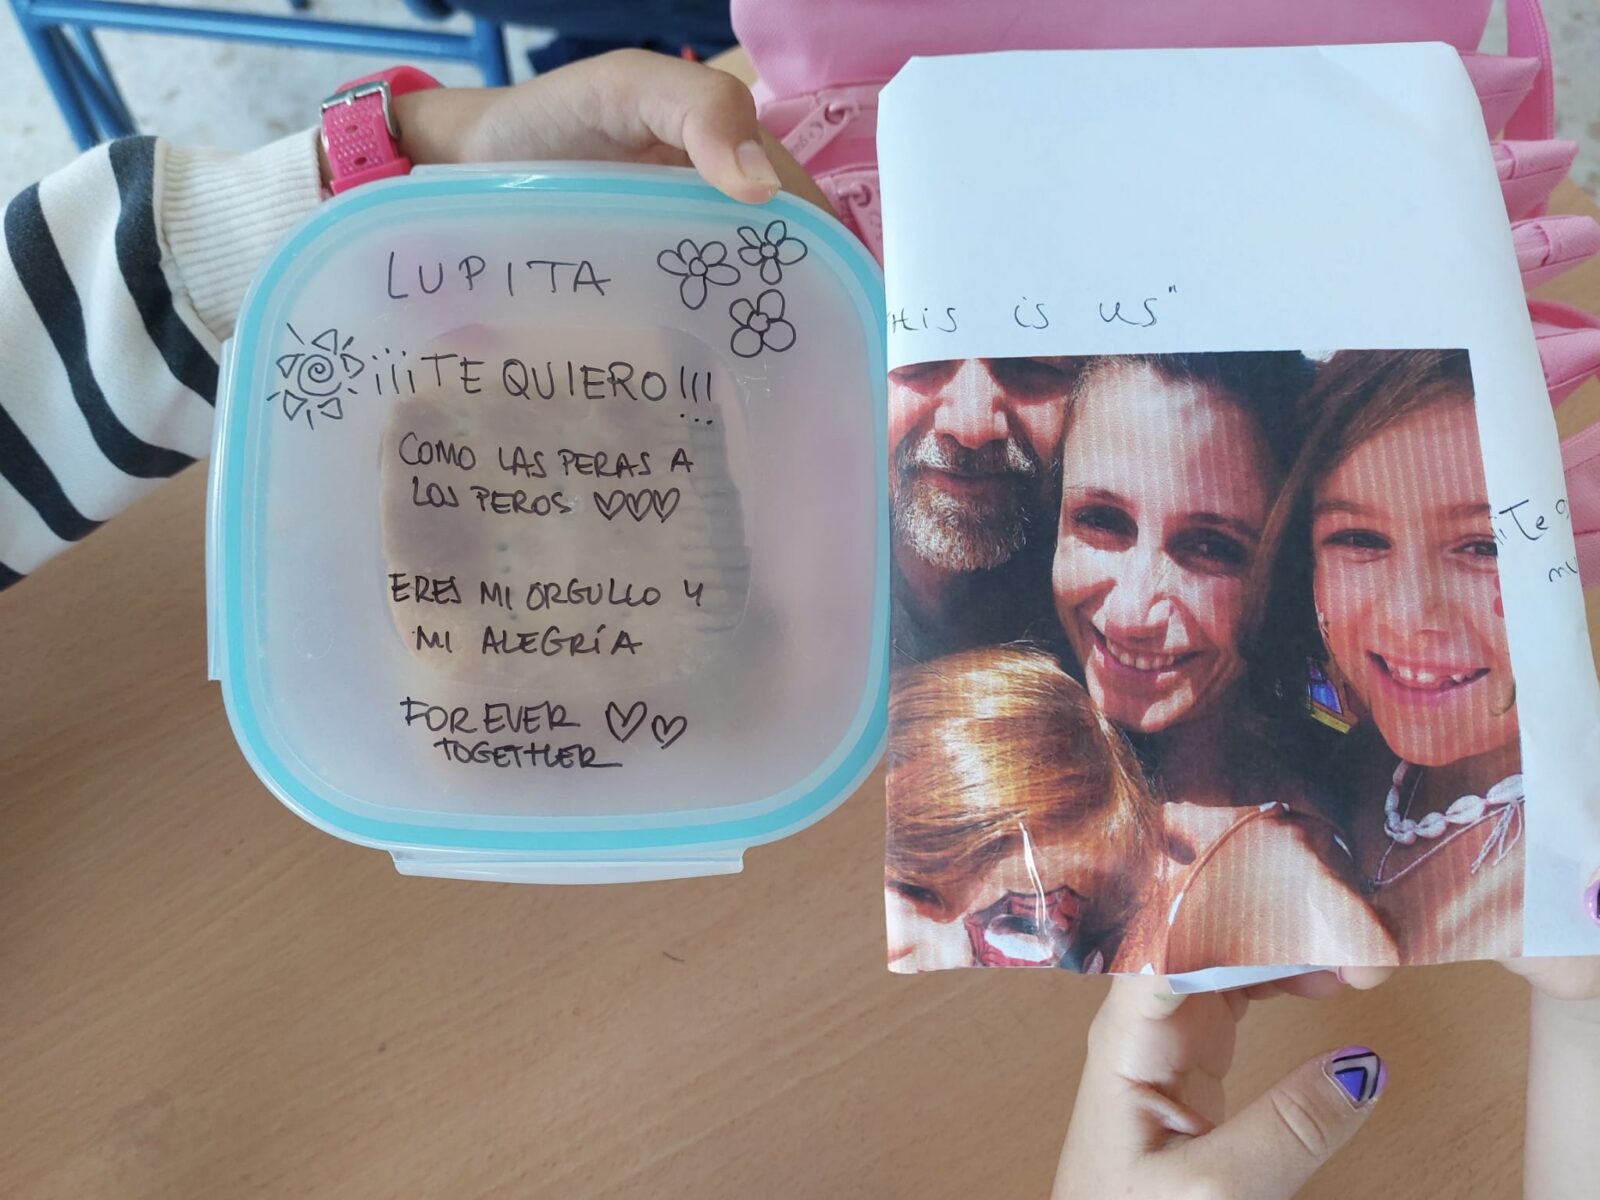 LUPITA
¡¡¡TE QUIERO!!!
COMO LAS PERAS A
LOS PEROS
ERES MI ORGULLO Y
MI ALEGRÍA
FOREVER
TOGETHER
is us"
¡¡Te